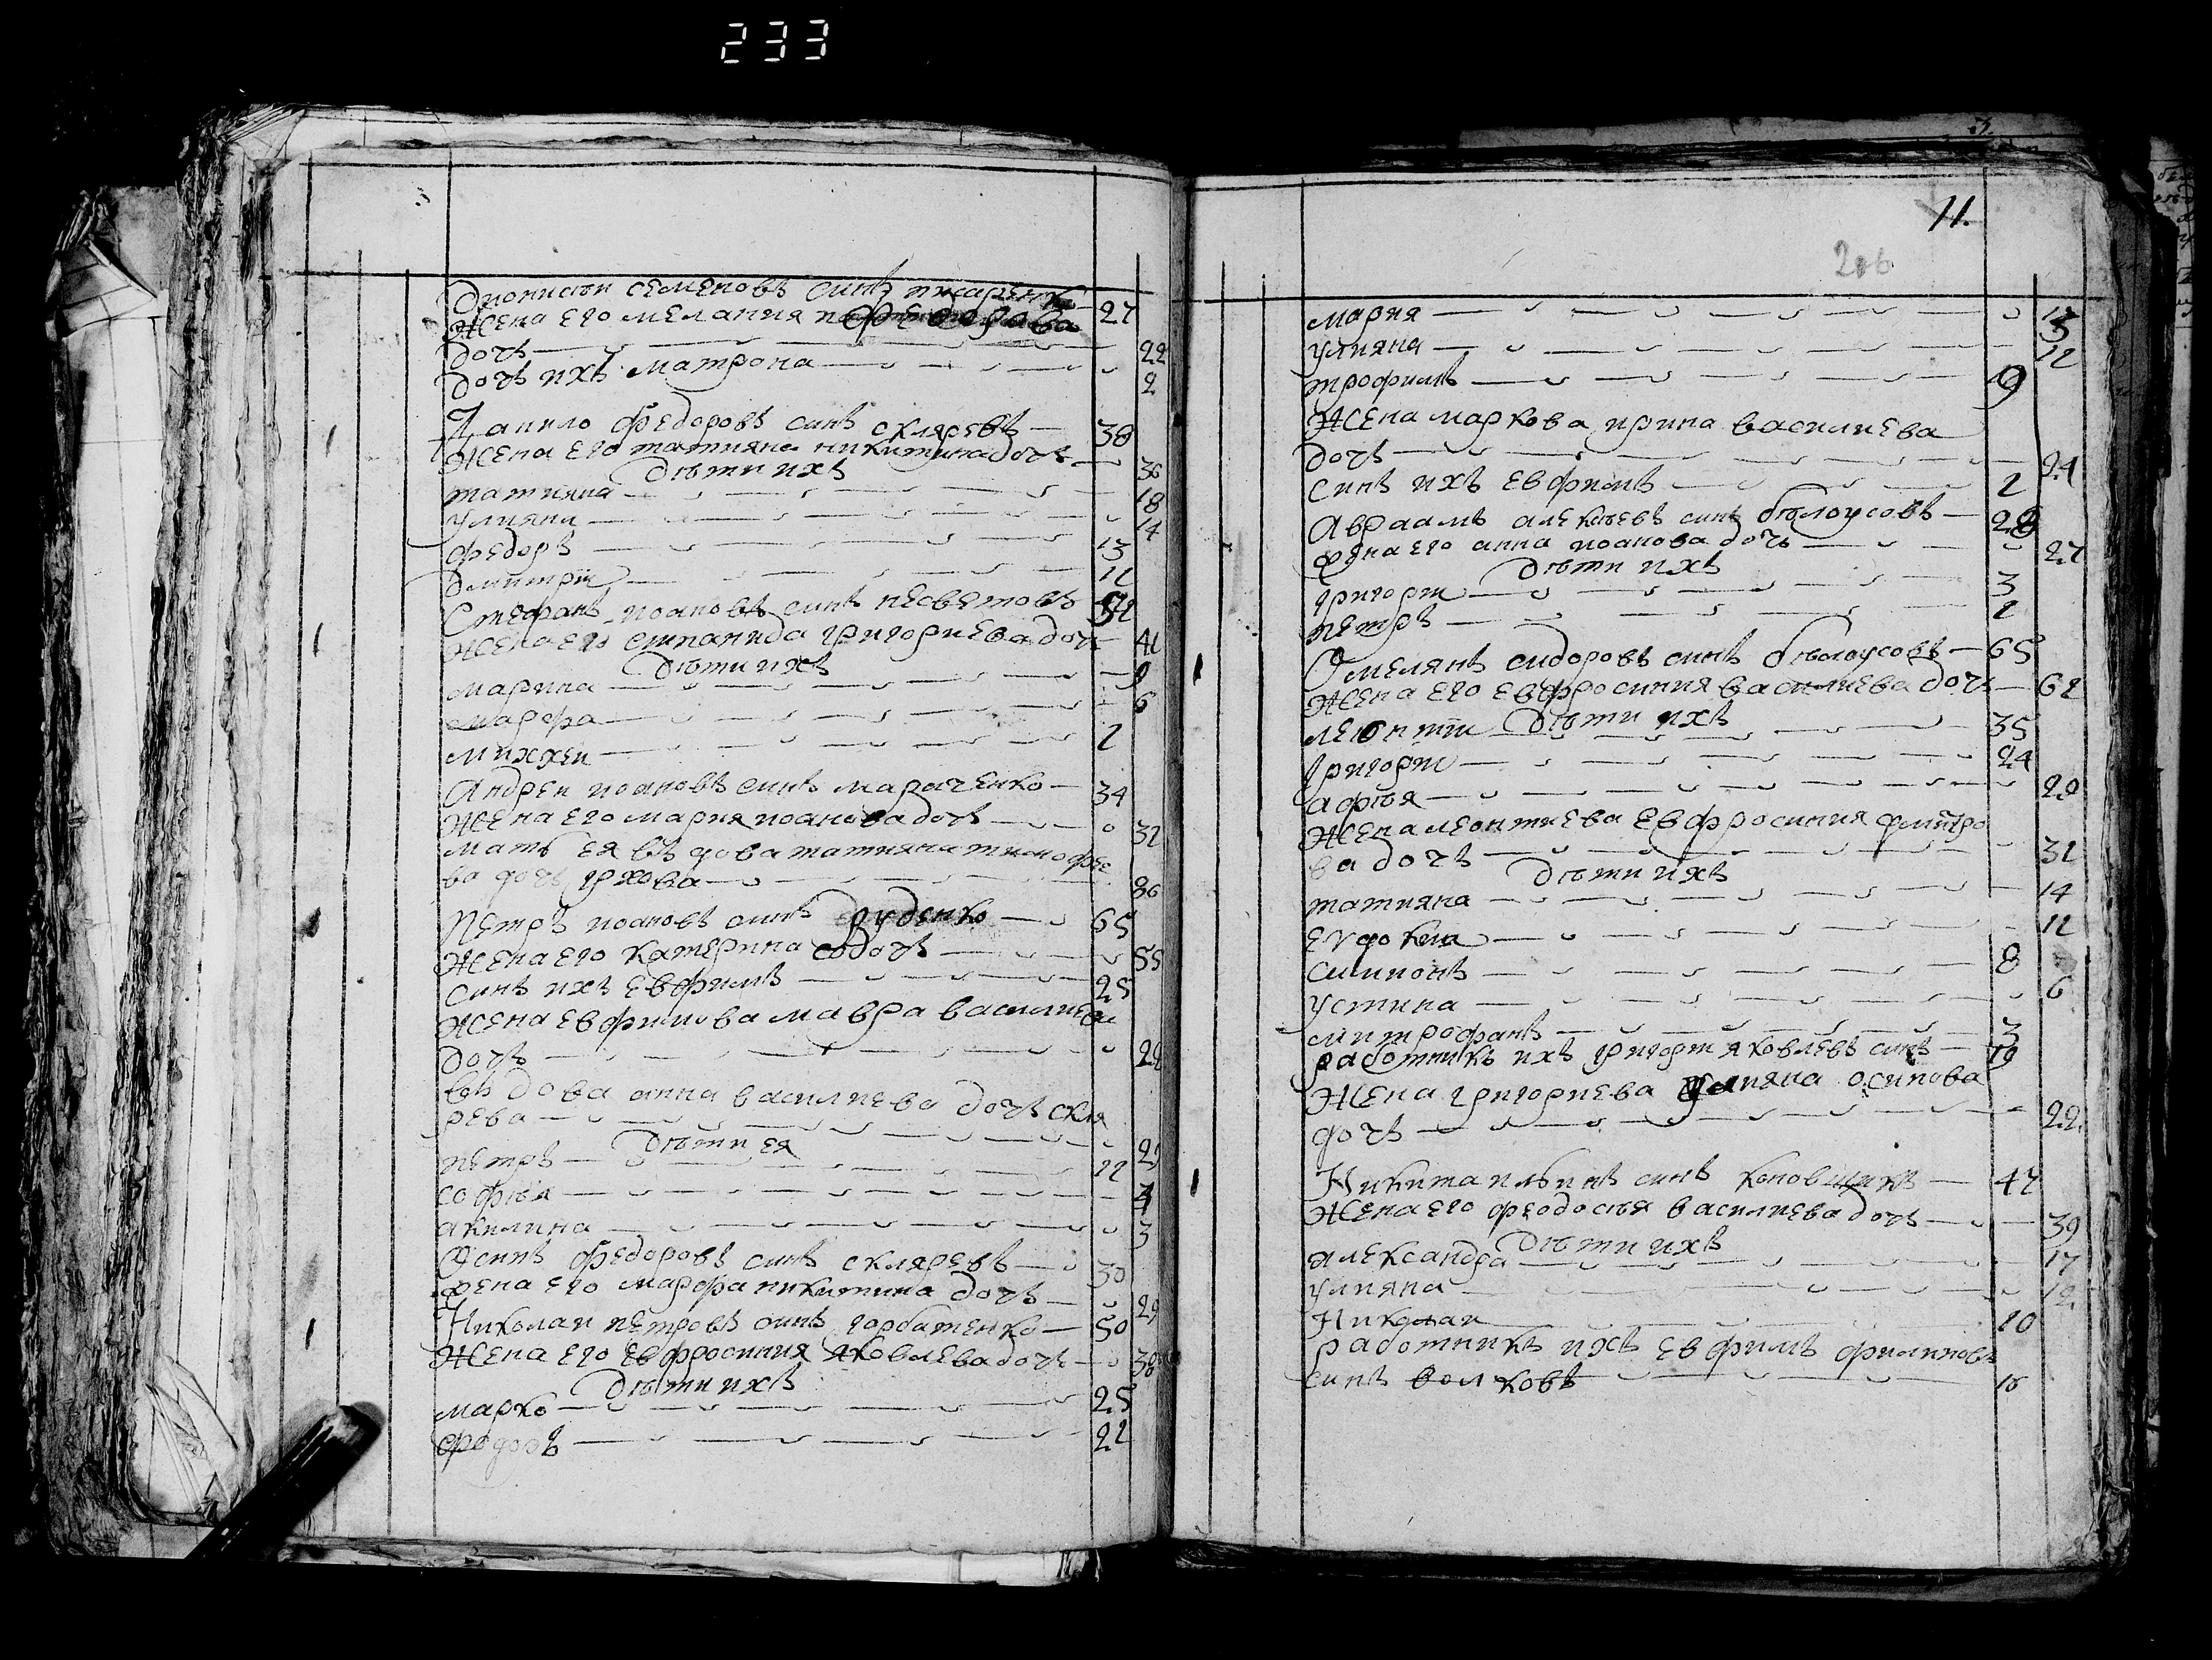 233
Дионисіи семеновъ синъ писаренко 27
жена его мелания федорова
дочь 22
дочь ихъ матрона 2
Данило федоровъ синъ скляревъ 38
жена его татияна никитина дочь 36
дѣти ихъ
татияна 18
улияна 14
федоръ 13
дмитрїи 11
Стефанъ иоановъ синъ несветовъ
жена его стпанида григориева доч 41
дѣти ихъ
марина 9
марфа 6
михаеи 2
Андреи иоановъ синъ мараченко 34
жена его мария иоанова дочь 32
мать ея въдова татияна тимофѣе
ва дочь 86
Петръ иоановъ синъ руденко 65
жена его катерина дочь 55
синъ ихъ евфимъ 25
жена евфимова мавра василиева
дочь 22
въдова анна василиева дочь скля
рева 29
дѣти ея
петръ 11
софѣя
акилина 3
Осипъ федоровъ синъ скляревъ 30
жена его марфа никитина дочь 29
Николаи петровъ синъ горбатенко 50
жена его евфросиния яковлева дочь
дѣти ихъ
марко 25
федоръ 22
11.
206
мария
улияна 12
трофимъ 9
жена маркова ирина василиева
дочь 24
синъ ихъ евфимъ 2
Авраамъ алексѣевъ синъ бѣлоусовъ 28
жена его анна иоанова дочь 27
дѣти ихъ
григорїи 3
петръ 2
Омелянъ сидоровъ синъ бѣлоусовъ 65
жена его евфросиния василиева дочь 62
дѣти ихъ
леонтїи 35
григорїи 24
афѣя 20
жена леонтиева евфросиния дмитро
ва дочь 32
дѣти ихъ
татияна 14
евдокия 12
симионъ 8
устина 6
митрофанъ 3
работникъ ихъ григорїи яковлевъ синъ
жена григориева улияна осипова
дочь 22
Никита илѣинъ синъ коновщикъ 47
жена его феодосѣя василиева дочь 39
дѣти ихъ
александра 17
улияна 12
Николаи 10
работникъ ихъ евфимъ филиповъ
синъ волковъ